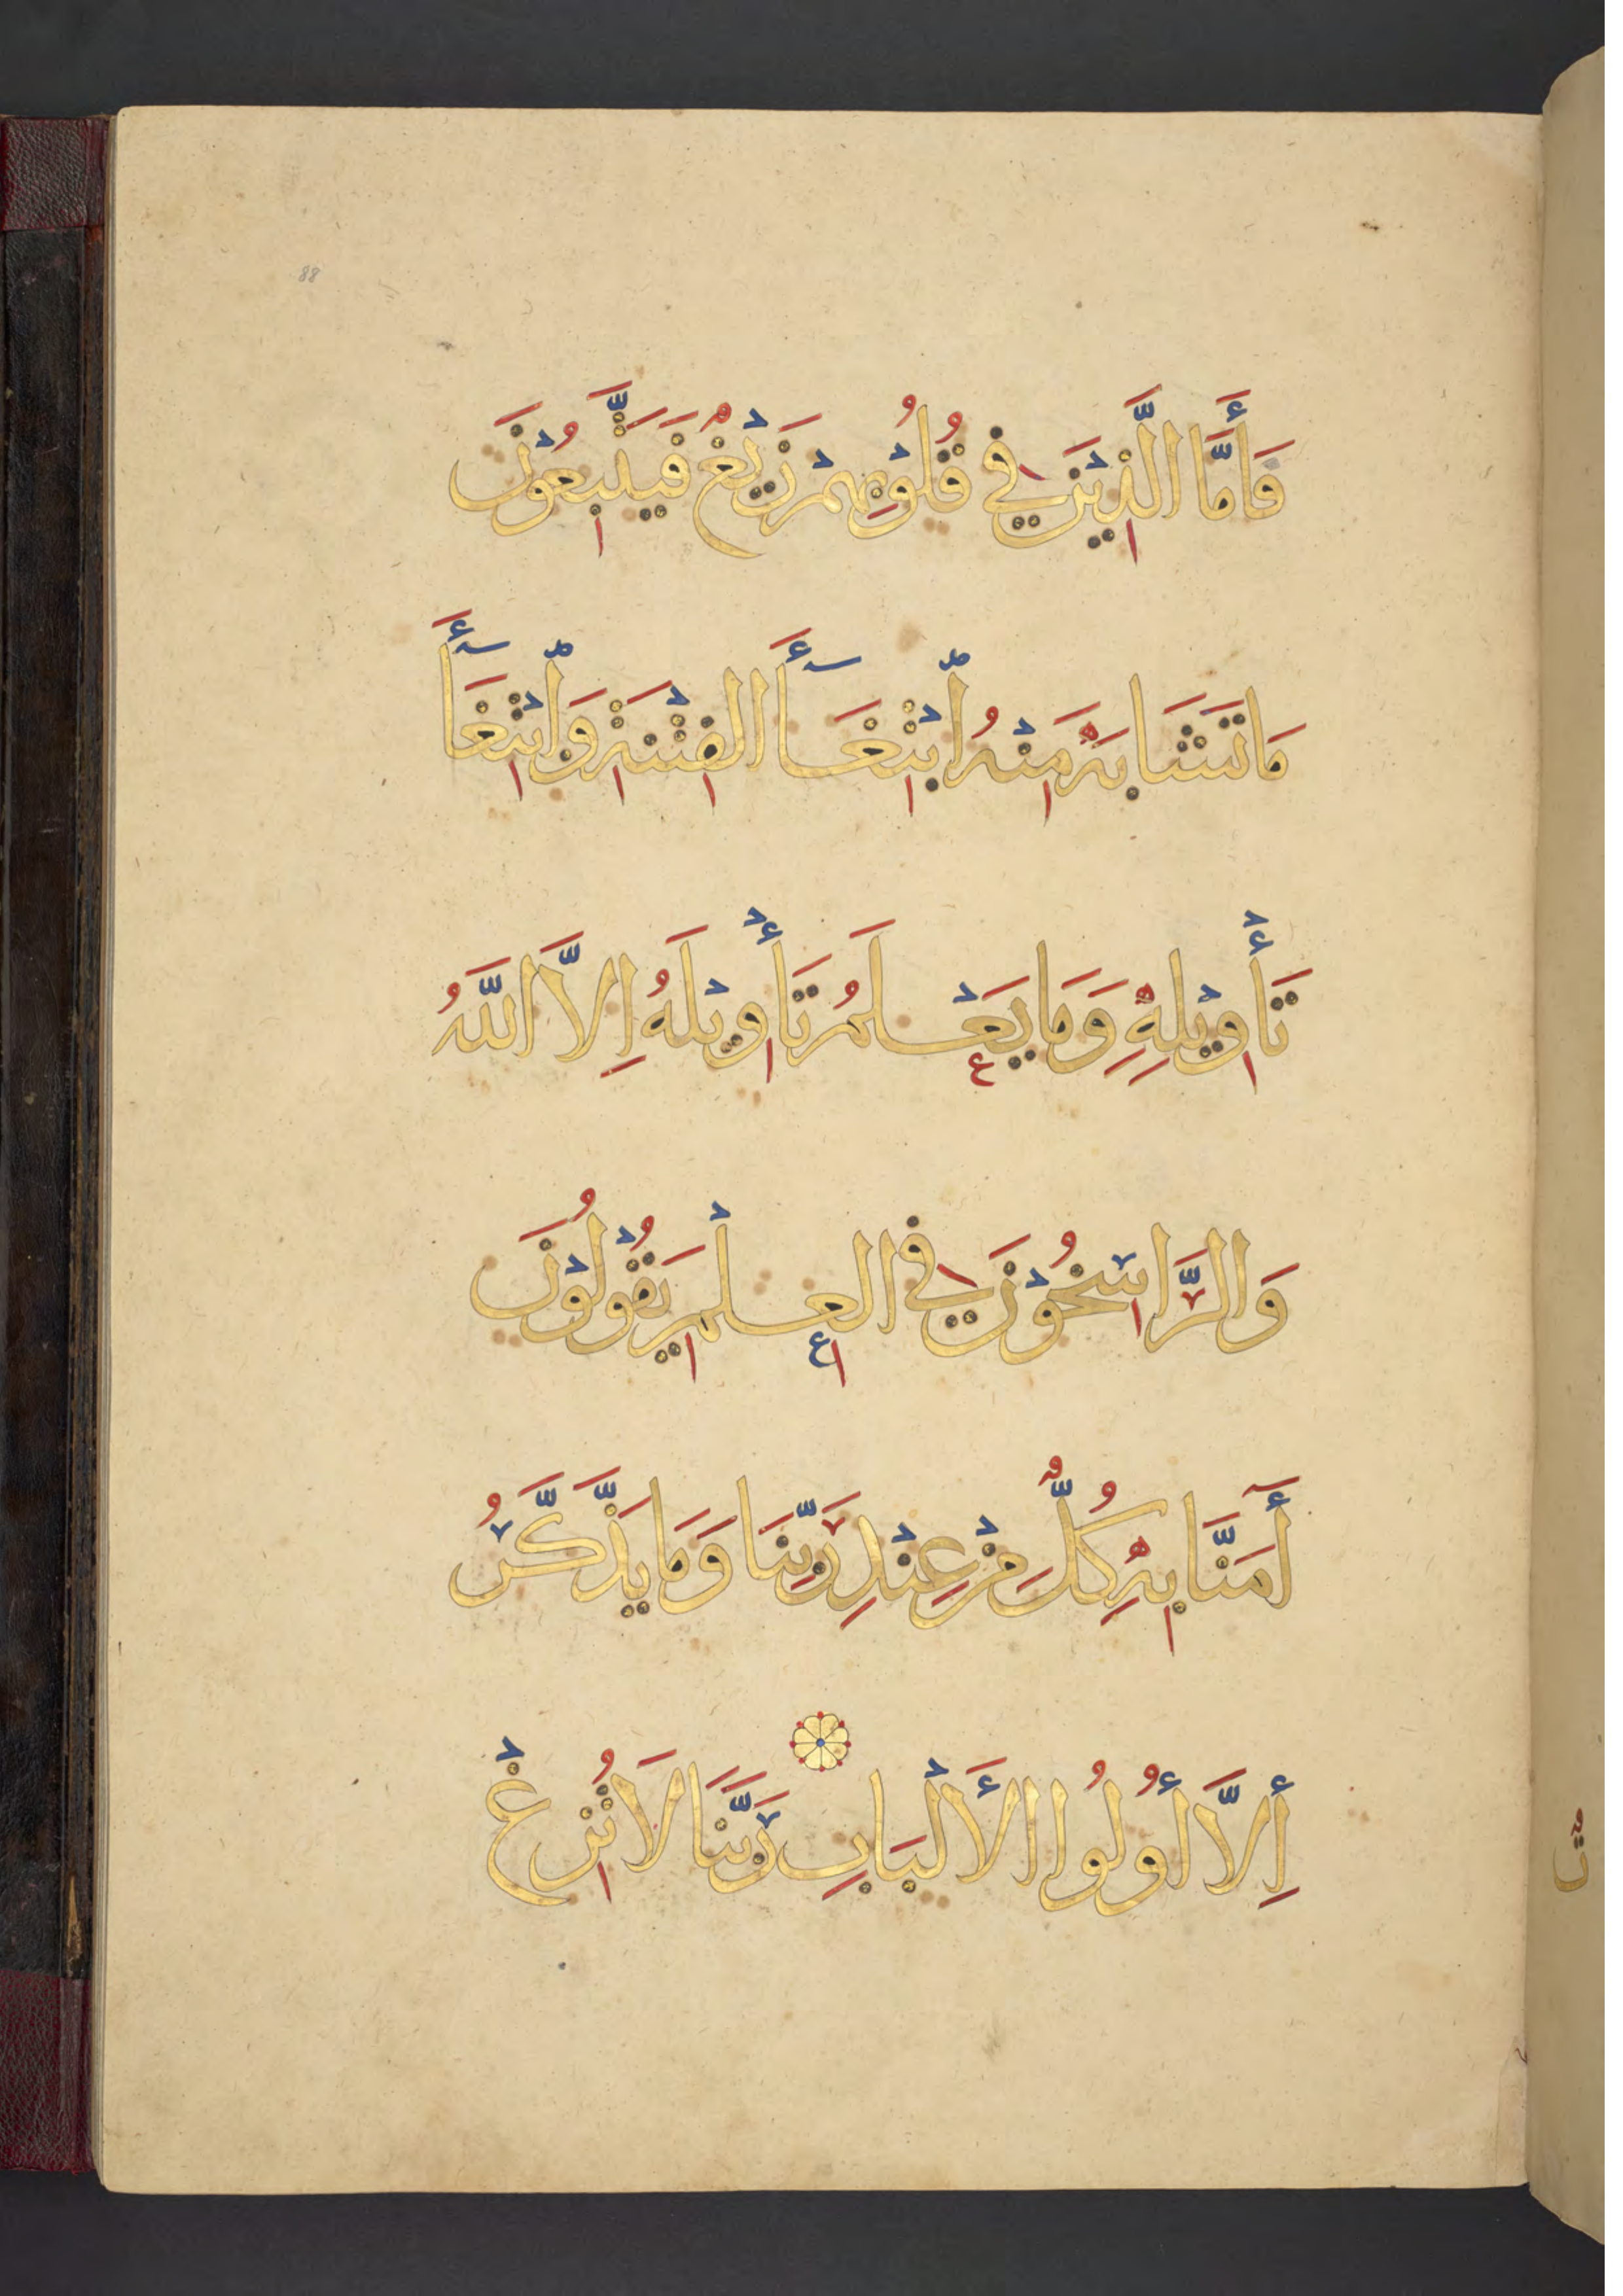 88
فَأَمَّا الَّذِيْنَ فِي قُلُوْبِهِمْ زَيْغٌ فَيَتَّبِعُوْنَ
مَا تَشَابَهَ مِنْهُ ابْتِغَآءَ الْفِتْنَةِ وَابْتِغَآءَ
تَأْوِيْلِهِ وَمَا يَعْلَمُ تَأْوِيْلَهُ اِلَّا اللَّهُ
وَالرَّاسِخُوْنَ فِي الْعِلْمِ يَقُوْلُوْنَ
أٰمَنَّا بِهِ كُلٌّ مِنْ عِنْدِ رَبِّنَا وَمَا يَذَّكَّرُ
إِلَّا أُولُوا الْأَلْبَابِ رَبَّنَا لَا تُزِغْ